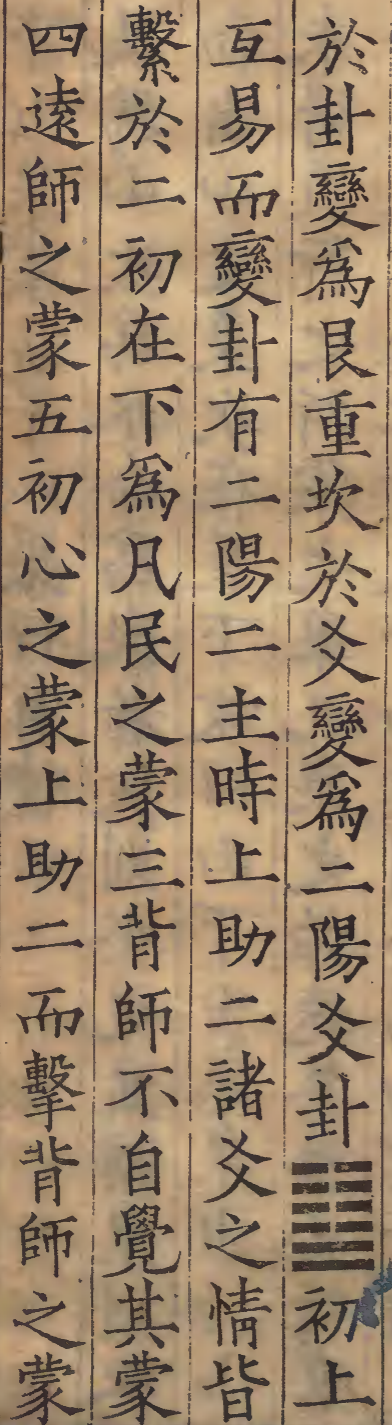 於卦變爲艮重坎於爻變爲二陽爻卦䷒初上
互易而變卦有二陽二主時上助二諸爻之情皆
繫於二初在下爲凡民之蒙三背師不自覺其蒙
四遠師之蒙五初心之蒙上助二而擊背師之蒙